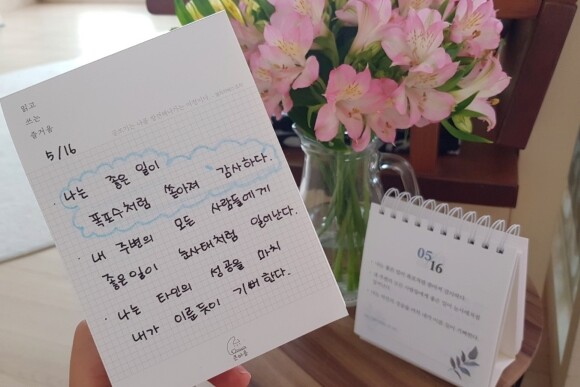 읽고
쓰는
즐거움
5/16
· 나는 좋은 일이
폭포수처럼 쏟아져 감사하다.
· 내 주변의 모든 사람들에게
좋은일이 눈사태처럼 일어난다.
· 나는 타인의 성공을 마치
내가 이룬듯이 기뻐한다.
05
16